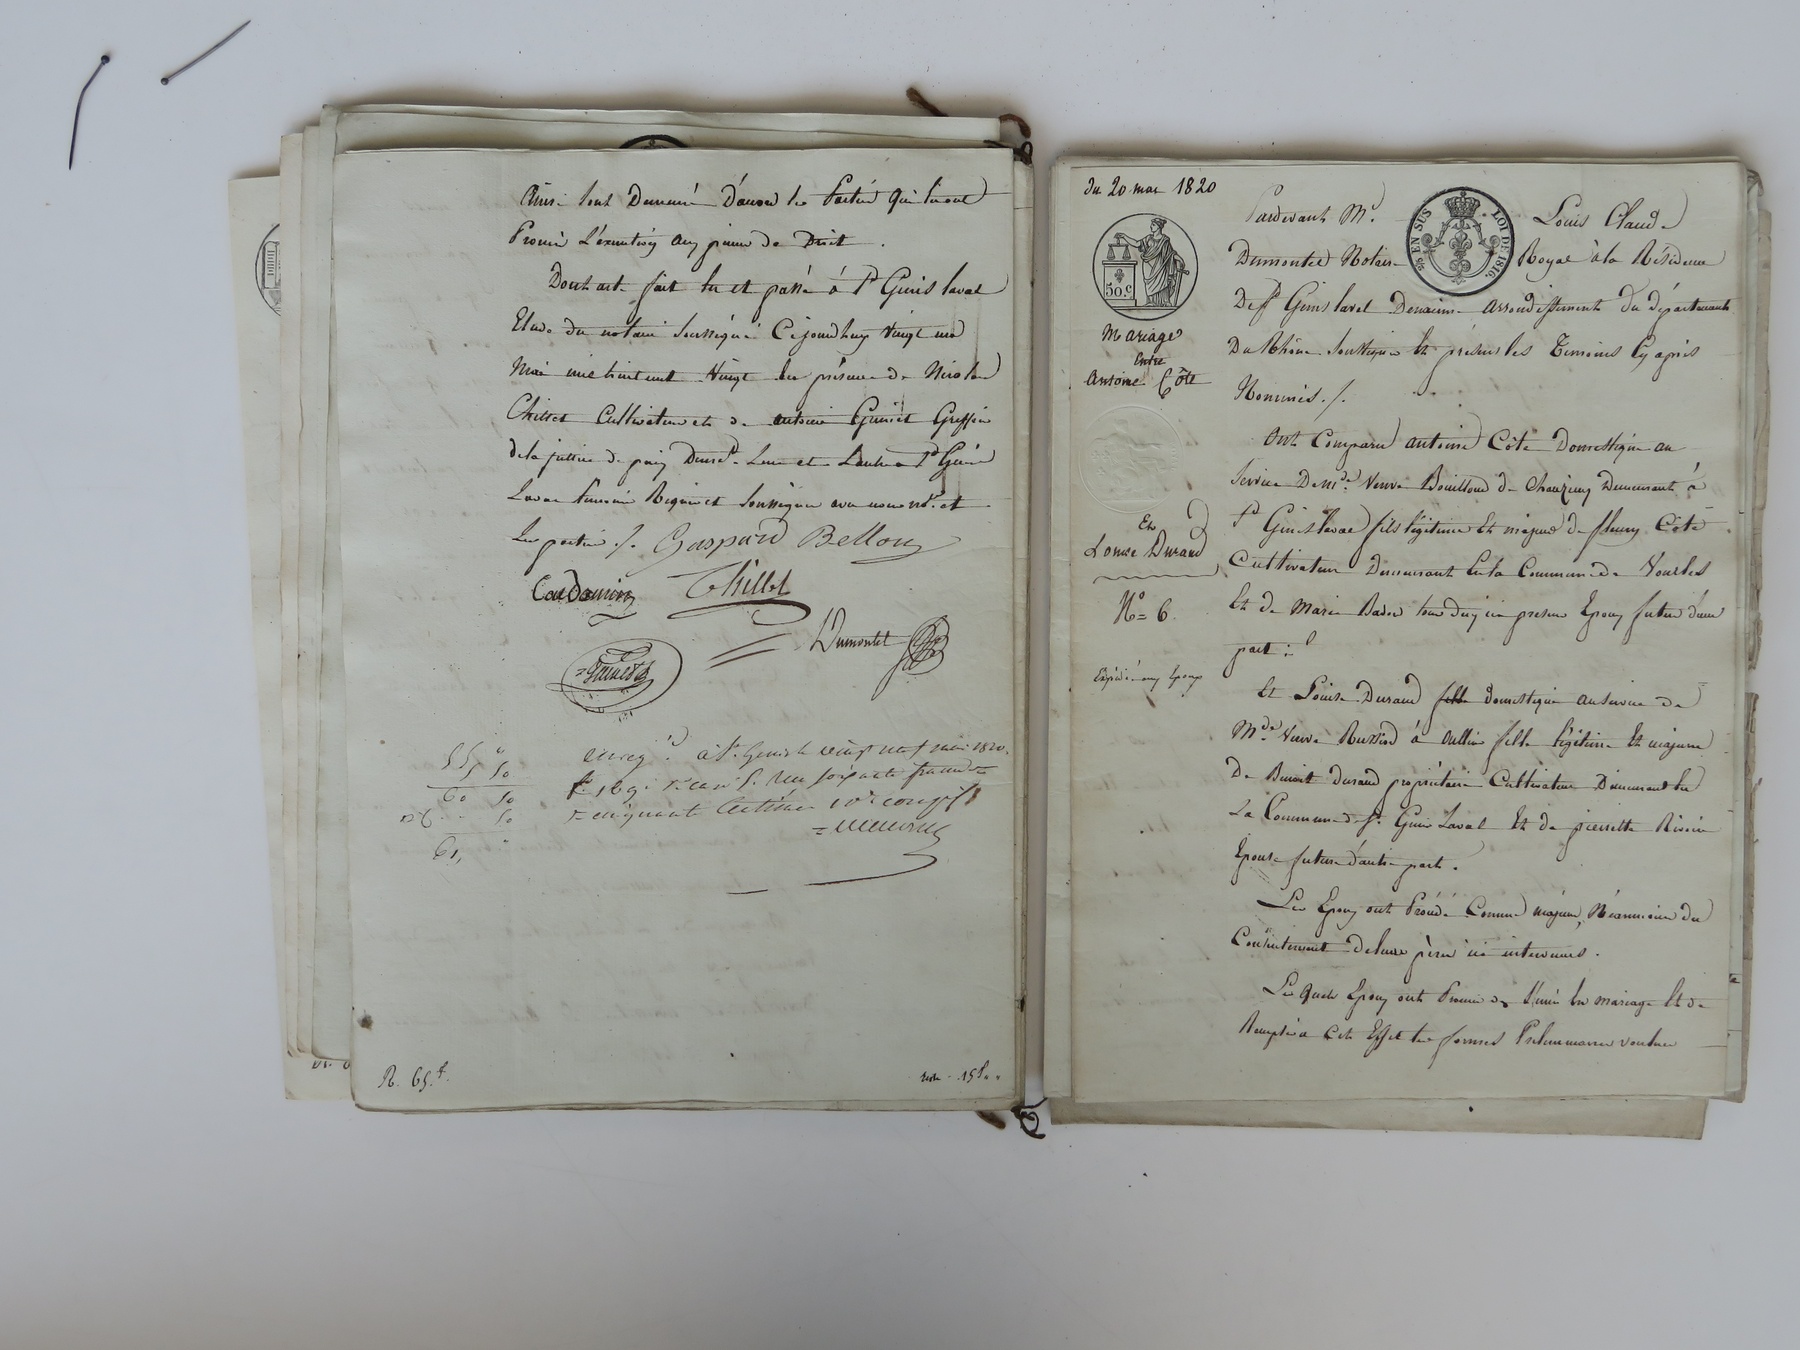 Ainsi sont Demeuré D'accord les Parties qui en ont
Promis L'exécution aux peines de Droit.
Dont acte fait lu et passé à St Genis laval
Etude du notaire Soussigné Cejourdhuy Vingt un
Mai mil huit cent Vingt En présence de Nicolas
Chillet Cultivateur et de antoine Guinet Greffier
de la justice de paix Demt. L'un et L'autre a St Genis
Laval Témoins Requis et Soussignés avec nous ntre. et
les parties ./. Gaspard Bellon
Cardonnier Thillet
Dumontet
Guinet
enregé. à St. Genis le vingt neuf mai 1820.
55 50
60 50
50
61,
fo. 169. Reçu cinquante Centimes 10e compris
R. 65.f.
reste - 15f. "
du 20 mai 1820
5/4 EN SUS LOI DE 1816.
50.c
Mariage
Entre
Antoine Côte
Et
Louise Durand
No = 6.
Expédié aux Epoux
Pardevant Me. Louis Claude
Dumontet Notaire Royal à la Résidence
De St Genis laval Deuxième arrondissement du département
Du Rhône Soussigné Et présens les Temoins Cy après
Nommés ./.
Ont Comparu antoine Côte Domestique au
Service De Mde. Veuve Bouillond de Chanzieux Demeurant à
St Genis laval fils légitime Et majeur de fleury Côte
Cultivateur Demeurant En la Commune de Vourles
Et de Marie Bador tous deux ici présens Epoux futur d'une
part :
Et Louise Durand fille domestique au Service de
Mde Veuve Russind à oullin fille légitime Et majeure
De Benoit Durand propriétaire Cultivateur Demeurant En
La Commune de St. Genis Laval Et de pierrette Rivoire
Epouse future d'autre part.
Les Epoux ont Procédé Comme majeurs, Néanmoins du
Consentement de leurs pères ici intervenus.
Lesquels Epoux ont Promis de S'unir En mariage Et de
Remplir a Cet Effet les formes Préliminaires voulues